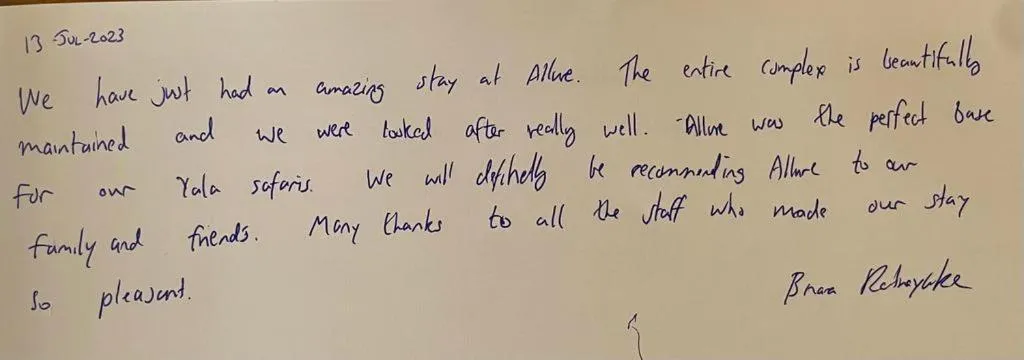 13-JUL-2023
We have just had an amazing stay at Allure. The entire complex is beautifully
maintained and we were looked after really well. Allure was the perfect base
for our Yala safaris. We will definitely be recommending Allure to our
family and friends. Many thanks to all the staff who made our stay
so pleasant.